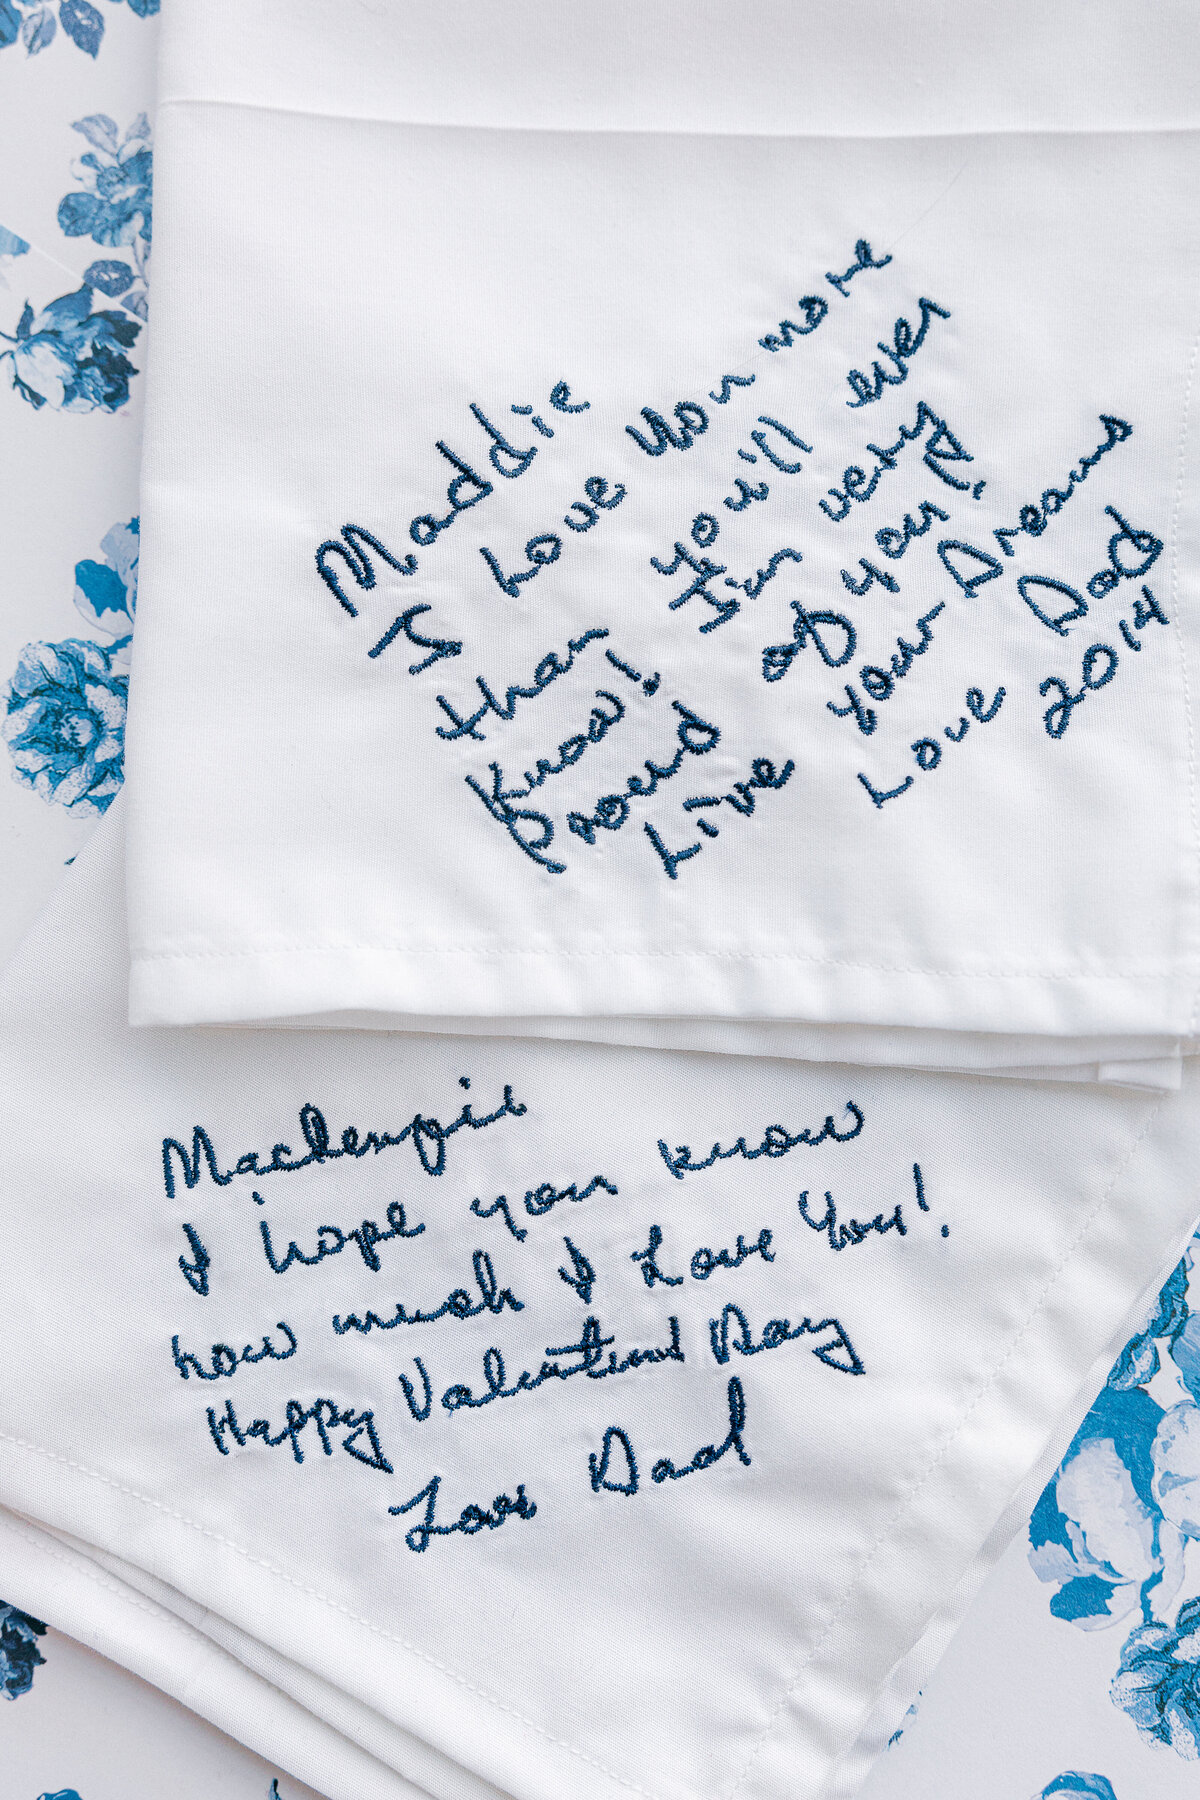 Maddie
I Love you more
than you'll ever
Know! I'm very
Proud of you!
Live your Dreams
Love Dad
2014
Mackenzie
I hope you know
how much I Love You!
Happy Valentines Day
Love Dad